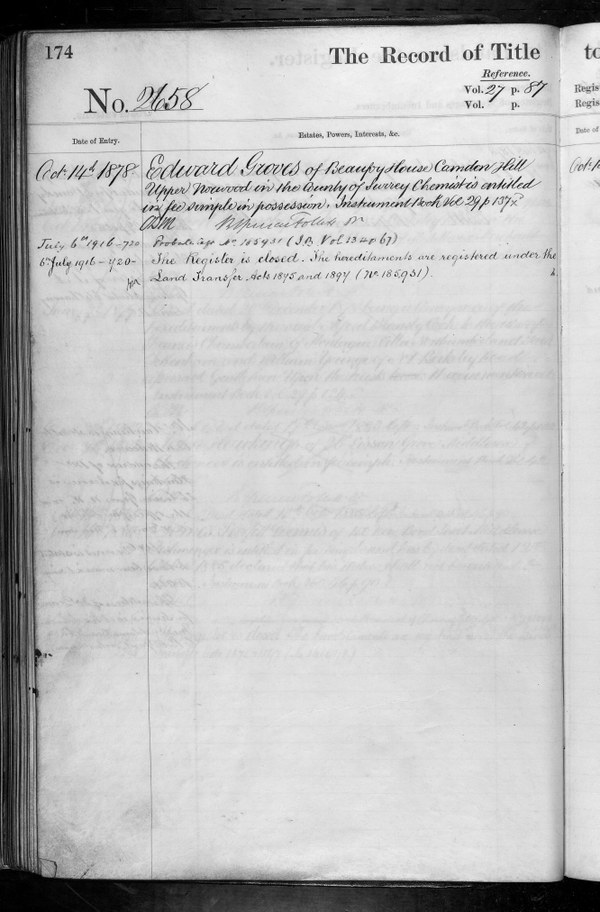 174
The Record of Title
Reference.
No. 2658
Vol. 27 p. 87
Vol. p.
Date of Entry.
Estates, Powers, Interests, &c.
Oct 14th 1878
Edward Groves of Beaufoy House Camden Hill
Upper Norwood in the County of Surrey Chemist is entitled
in fee simple in possession. Instrument Book Vol 29 p 137
July 6th 1916 - 720
Probate No. 185931 (I.B. Vol 234 p 67)
6th July 1916 - 720 -
The Register is closed. The hereditaments are registered under the
Land Transfer Acts 1875 and 1897 (No. 185931).
to
Regis
Regis
Date of
Oct